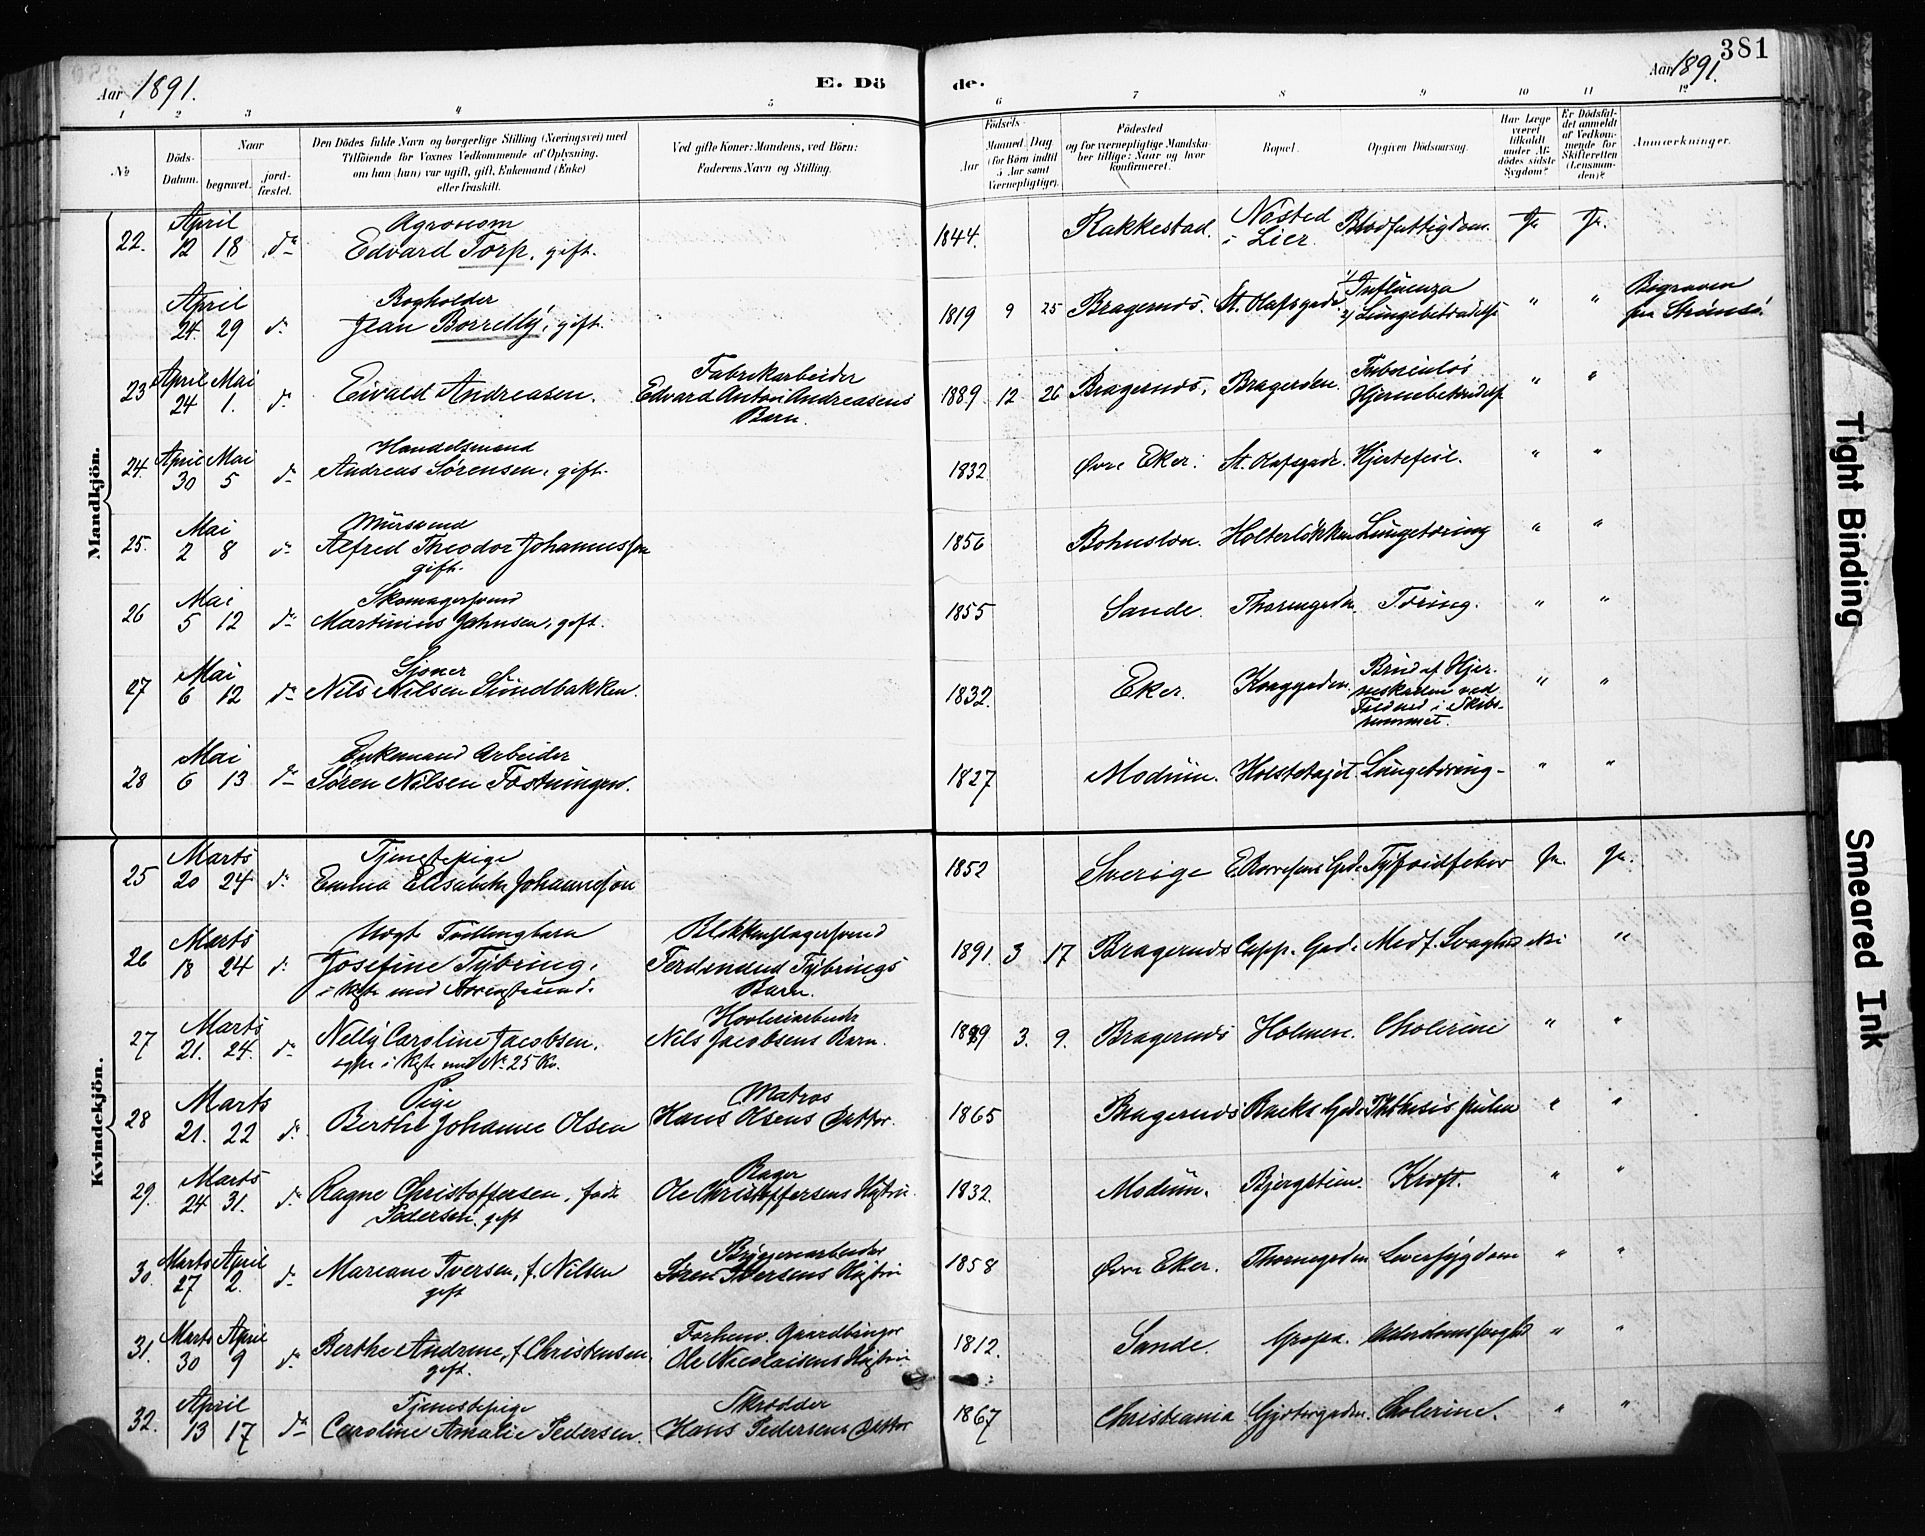 381
Aar 1891.
E. Dö
de.
Aar 1891.
1 2 3 4 5 6 7 8 9 10 11 12
No
Döds-Datum.
Naar
begravet.
jord-fæstet.
Den Dödes fulde Navn og borgerlige Stilling (Næringsvei) med
Tilföiende for Voxnes Vedkommende af Oplysning,
om han (hun) var ugift, gift, Enkemand (Enke)
eller fraskilt.
Ved gifte Koner: Mandens, ved Börn:
Faderens Navn og Stilling.
Födsels-
Aar
Maaned
Dag
(for Börn indtil
5 Aar samt
Værnepligtige).
Födested
og for værnepligtige Mandska-
ber tillige: Naar og hvor
konfirmeret.
Bopæl.
Opgiven Dödsaarsag.
Har Læge
været
tilkaldt
under Af-
dödes sidste
Sygdom?
Er Dödsfal-
det anmeldt
af Vedkom-
mende for
Skifteretten
(Lensman-
den)?
Anmærkninger.
Mandkjön.
22. April 12 18 do Agronom
Edvard Torp, gift. 1844. Rakkestad. Nøsted i Lier. Blodfattigdom. Ja Ja.
April 24. 29 do Bogholder
Jean Borrelly, gift. 1819 9 25 Bragernes. St. Olafsgade. 1/ Influenza
2/ Lungebetændelse " " Begraven
paa Strømsø.
23 April 24 Mai 1. do Eivald Andreasen. Fabrikarbeider
Edvard Anton Andreasens
Barn. 1889. 12 26 Bragernes. Bragerøen. Tuberculøs
Hjernebetændelse " "
24. April 30 Mai 5 do Handelsmand
Andreas Sørensen, gift. 1832 Øvre Eker. St. Olafsgade. Hjertefeil. " "
25. Mai 2 8 do Mursvend
Alfred Theodor Johannesson
gift. 1856 Bohuslen. Holterløkken Lungetæring " "
26 Mai 5 12 do Skomagersvend
Martinius Jahnsen, gift. 1855 Sande. Thornegaden. Tæring. " "
27 Mai 6 12 do Sjøner
Nils Nilsen Sundbakken. 1832. Eker. Kraggaden. Brud af Hjer-
neskallen ved
Fald ned i Skibs-
rummet. " "
28 Mai 6 13 do Enkemand Arbeider
Søren Nilsen Fostningen. 1827 Modum. Lungetæring " "
Kvindekjön.
25 Marts 20 24 do Tjenestepige
Emma Elisabeth Johannesson 1852 Sverige Tyfoidfeber Ja. Ja.
26 Marts 18 24 do Uægte Tvillingbarn
Josefine Tybring, Blikkenslagersvend
Ferdinand Tybrings
Barn. 1891. 3 17 Bragernes Capp. Gade. Medf. Svaghed nei "
27 Marts 21. 24. do Nelly Caroline Jacobsen.
ogsaa i Kiste med No 25 Kv. Høvleriarbeider
Nils Jacobsens Barn. 1889 3. 9. Bragernes Holmen. Cholerine " "
28 Marts 21. 22 do Pige
Berthe Johanne Olsen Matros
Hans Olsens Datter. 1865 Bragernes Backs Gade. Phthisis pulm " "
29. Marts 24 31. do Ragne Christoffersen, født
Pedersen, gift Bager
Ole Christoffersens Hustru. 1832. Modum. Bjergstien. Kræft. " "
30. Marts 27 April 2. do Mariane Iversen, f. Nilsen
gift Bryggeriarbeider
Søren Iversens Hustru 1858 Øvre Eker. Thornegaden Leversygdom " "
31. Marts 30 April 9 do Berthe Andrine, f. Christensen.
gift. Forhenv. Gaardbruger
Ole Nicolaisens Hustru 1812. Sande. Alderdomssvaghed " "
32. April 13 17 do Tjenestepige
Caroline Amalie Pedersen. Skrædder
Hans Pedersens Datter 1867 Christiania Gjetergaden. Cholerine. " "
Tight Binding
Smeared Ink